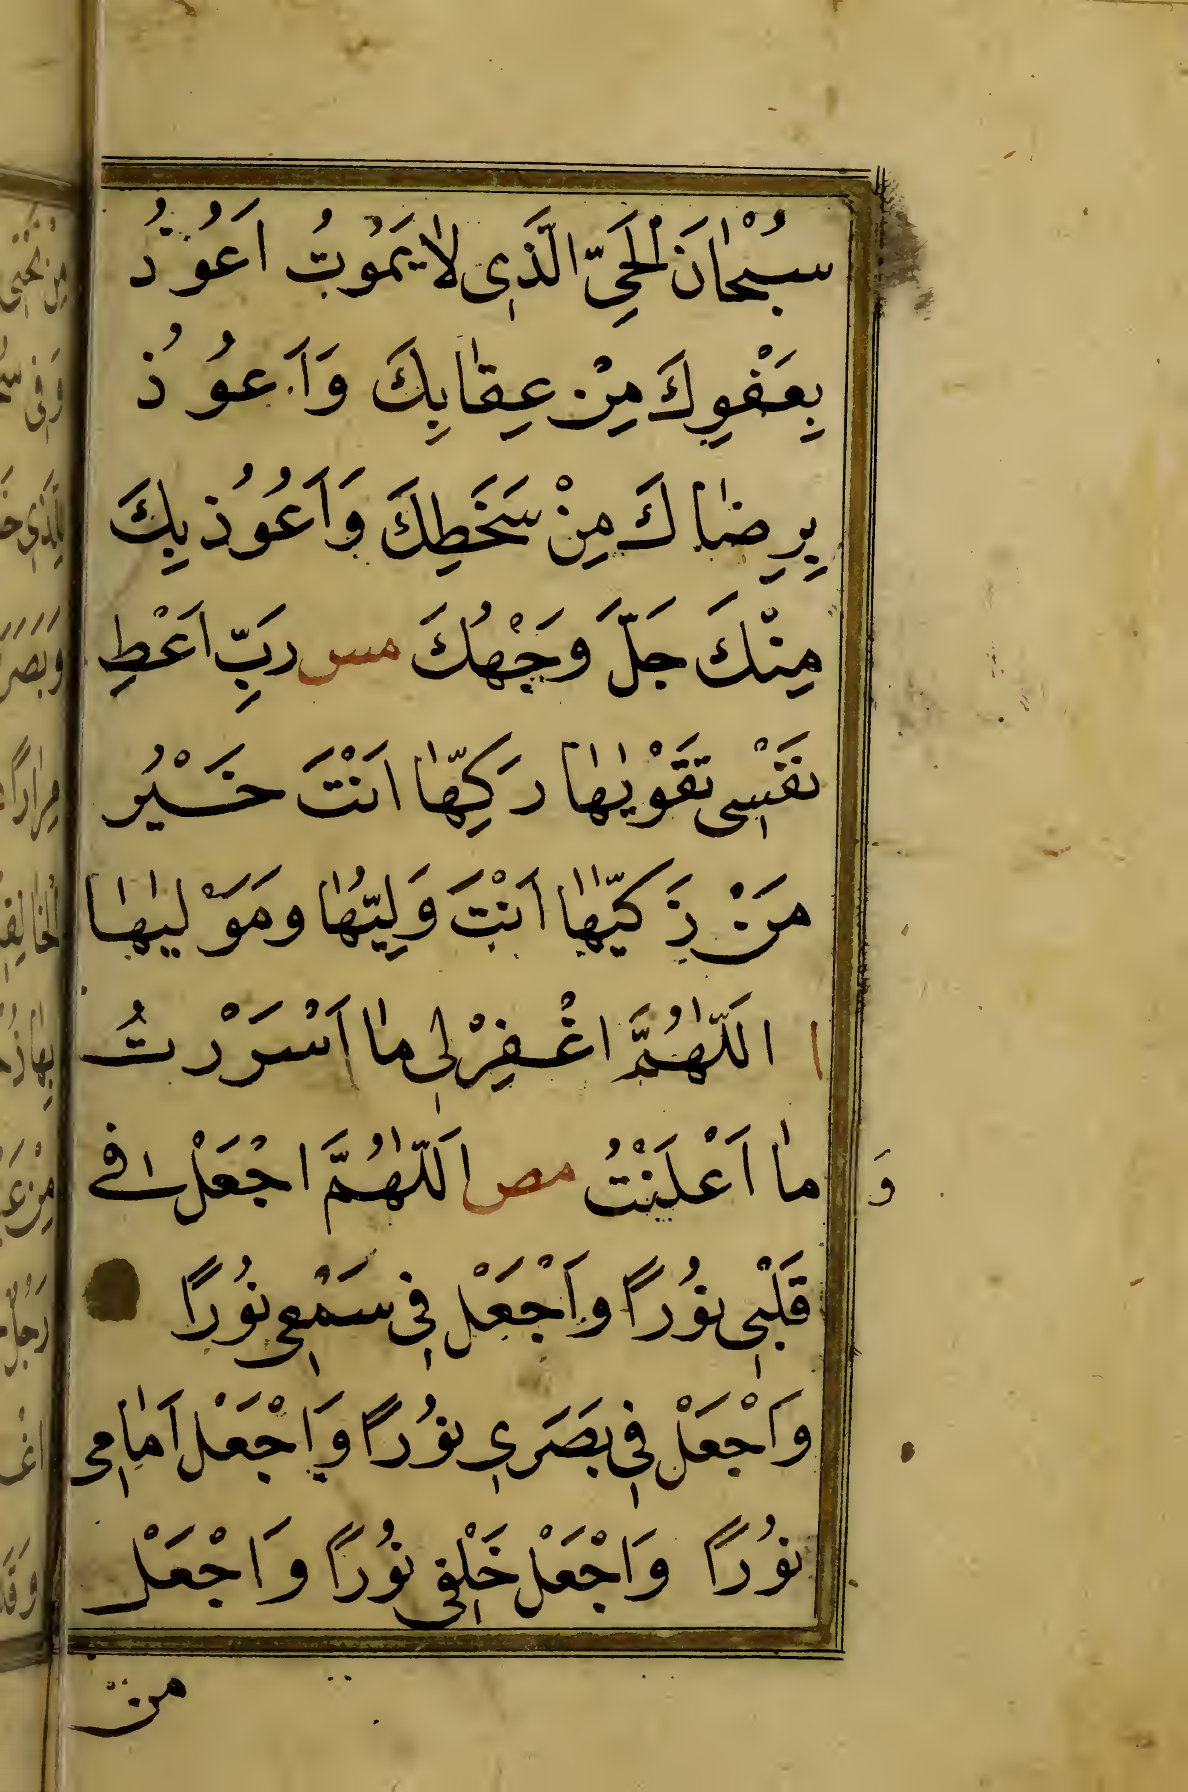 سُبْحٰانَ الْحَىِّ الَّذَٖى لٰا يَمُوْتُ اَعُوْذُ
بِعَفْوِكَ مِنْ عِقٰابِكَ وَاَعُوُذ
بِرِضٰاكَ مِنْ سَخَطِكَ وَاَعُوُذ بِكَ
مِنْكَ جَلَّ وَجْهُكَ مس رَبِّ اَعْطِ
نَفْسٖى تَقْوٰيهٰا زَكِّهٰا اَنْتَ خَيْرُ
مَنْ زَكّٰيهٰا اَنْتَ وَلِيُّهٰا وَمَوْلٰيهٰا
ا اَللّٰهُمَّ اغْفِرْ لٖى مٰا اَسْرَرْتُ
وَ مٰا اَعْلَنْتُ مص اَللّٰهُمَّ اجْعَلْ فى
قَلْبٖى نُوُرًا وَاَجْعَلْ فٖى سَمْعٖى نُوُرًا
وَاَجْعَلْ فٖى بَصَرٖى نُوُرًا وَاجْعَلْ اَمٰامٖى
نُوُرًا وَاَجْعَلْ خَلْفٖى نُوُرًا وَاَجْعَلْ
من